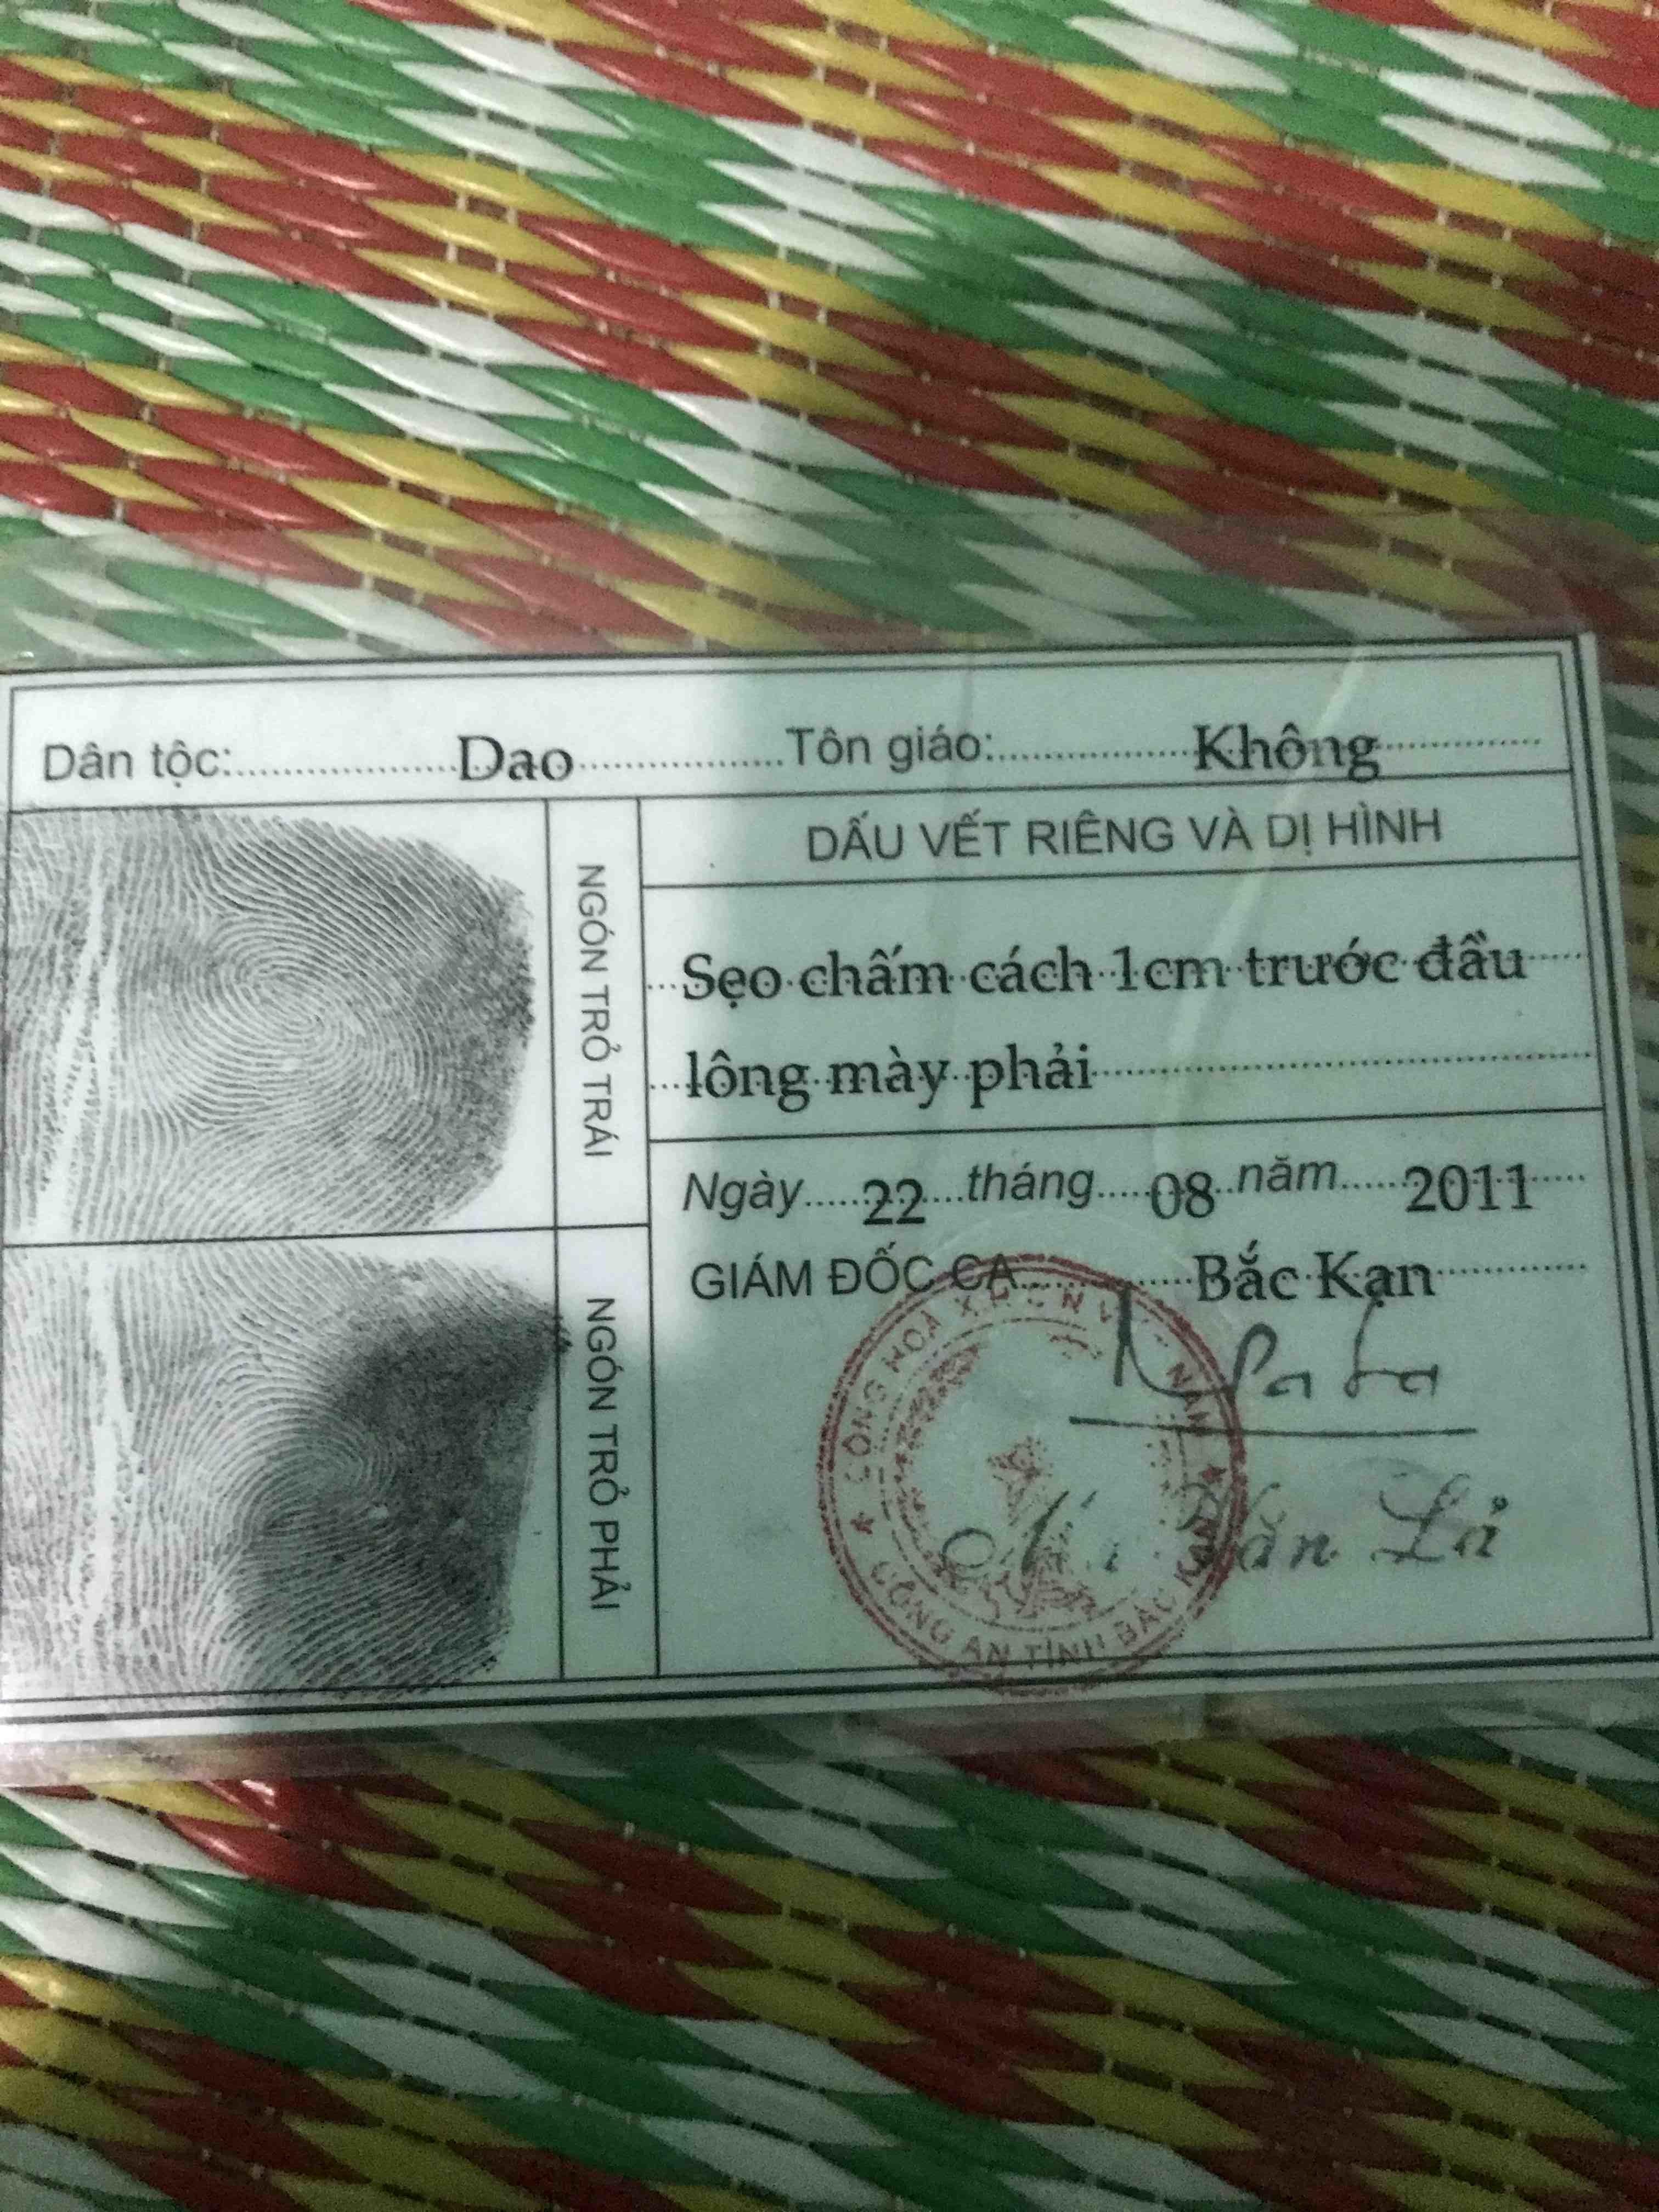 Dân tộc: Dao Tôn giáo: Không
NGÓN TRỎ TRÁI
NGÓN TRỎ PHẢI
DẤU VẾT RIÊNG VÀ DỊ HÌNH
Sẹo chấm cách 1cm trước đầu
lông mày phải
Ngày 22 tháng 08 năm 2011
GIÁM ĐỐC CA Bắc Kạn
CỘNG HOÀ X.H.C.N VIỆT NAM
CÔNG AN TỈNH BẮC KẠN
Văn Lả